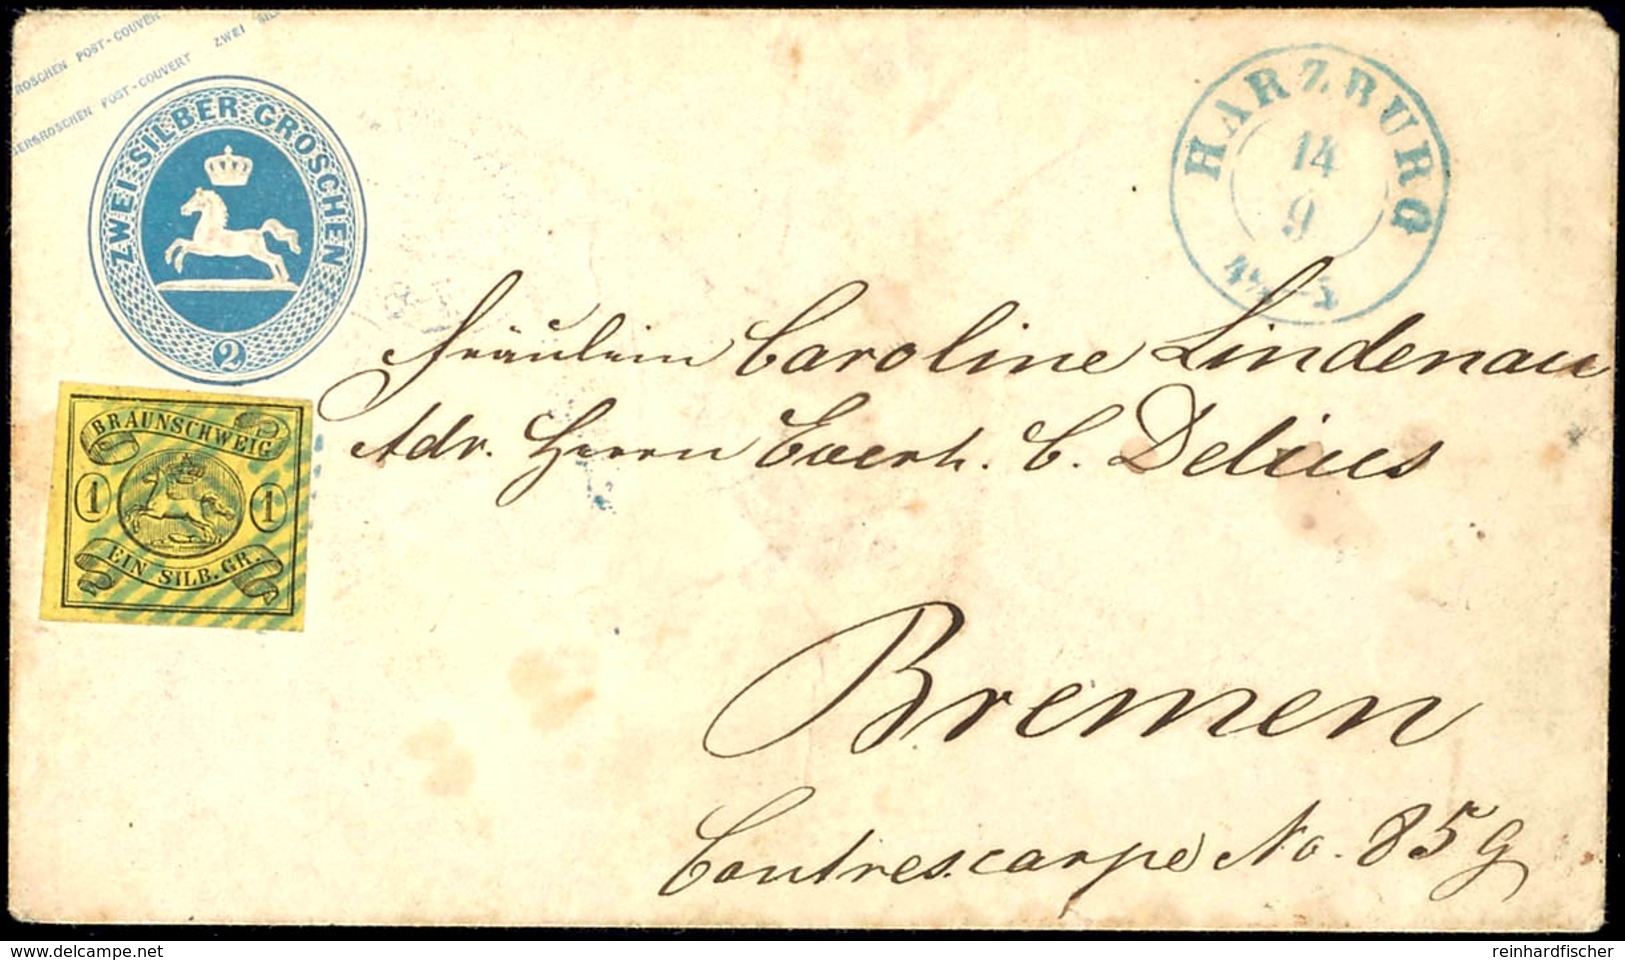 GROSCHEN POST-COUVERT
BERGROSCHEN POST-COUVERT ZWEI SIL
ZWEI SILBER GROSCHEN
2
HARZBURG
14
9
Fräulein Caroline Lindenau
Adr. Herrn Everh. C. Delius
BRAUNSCHWEIG
1 1
EIN SILB. GR.
Bremen
Contrescarpe No. 85g
delcampe.net
reinhardfischer